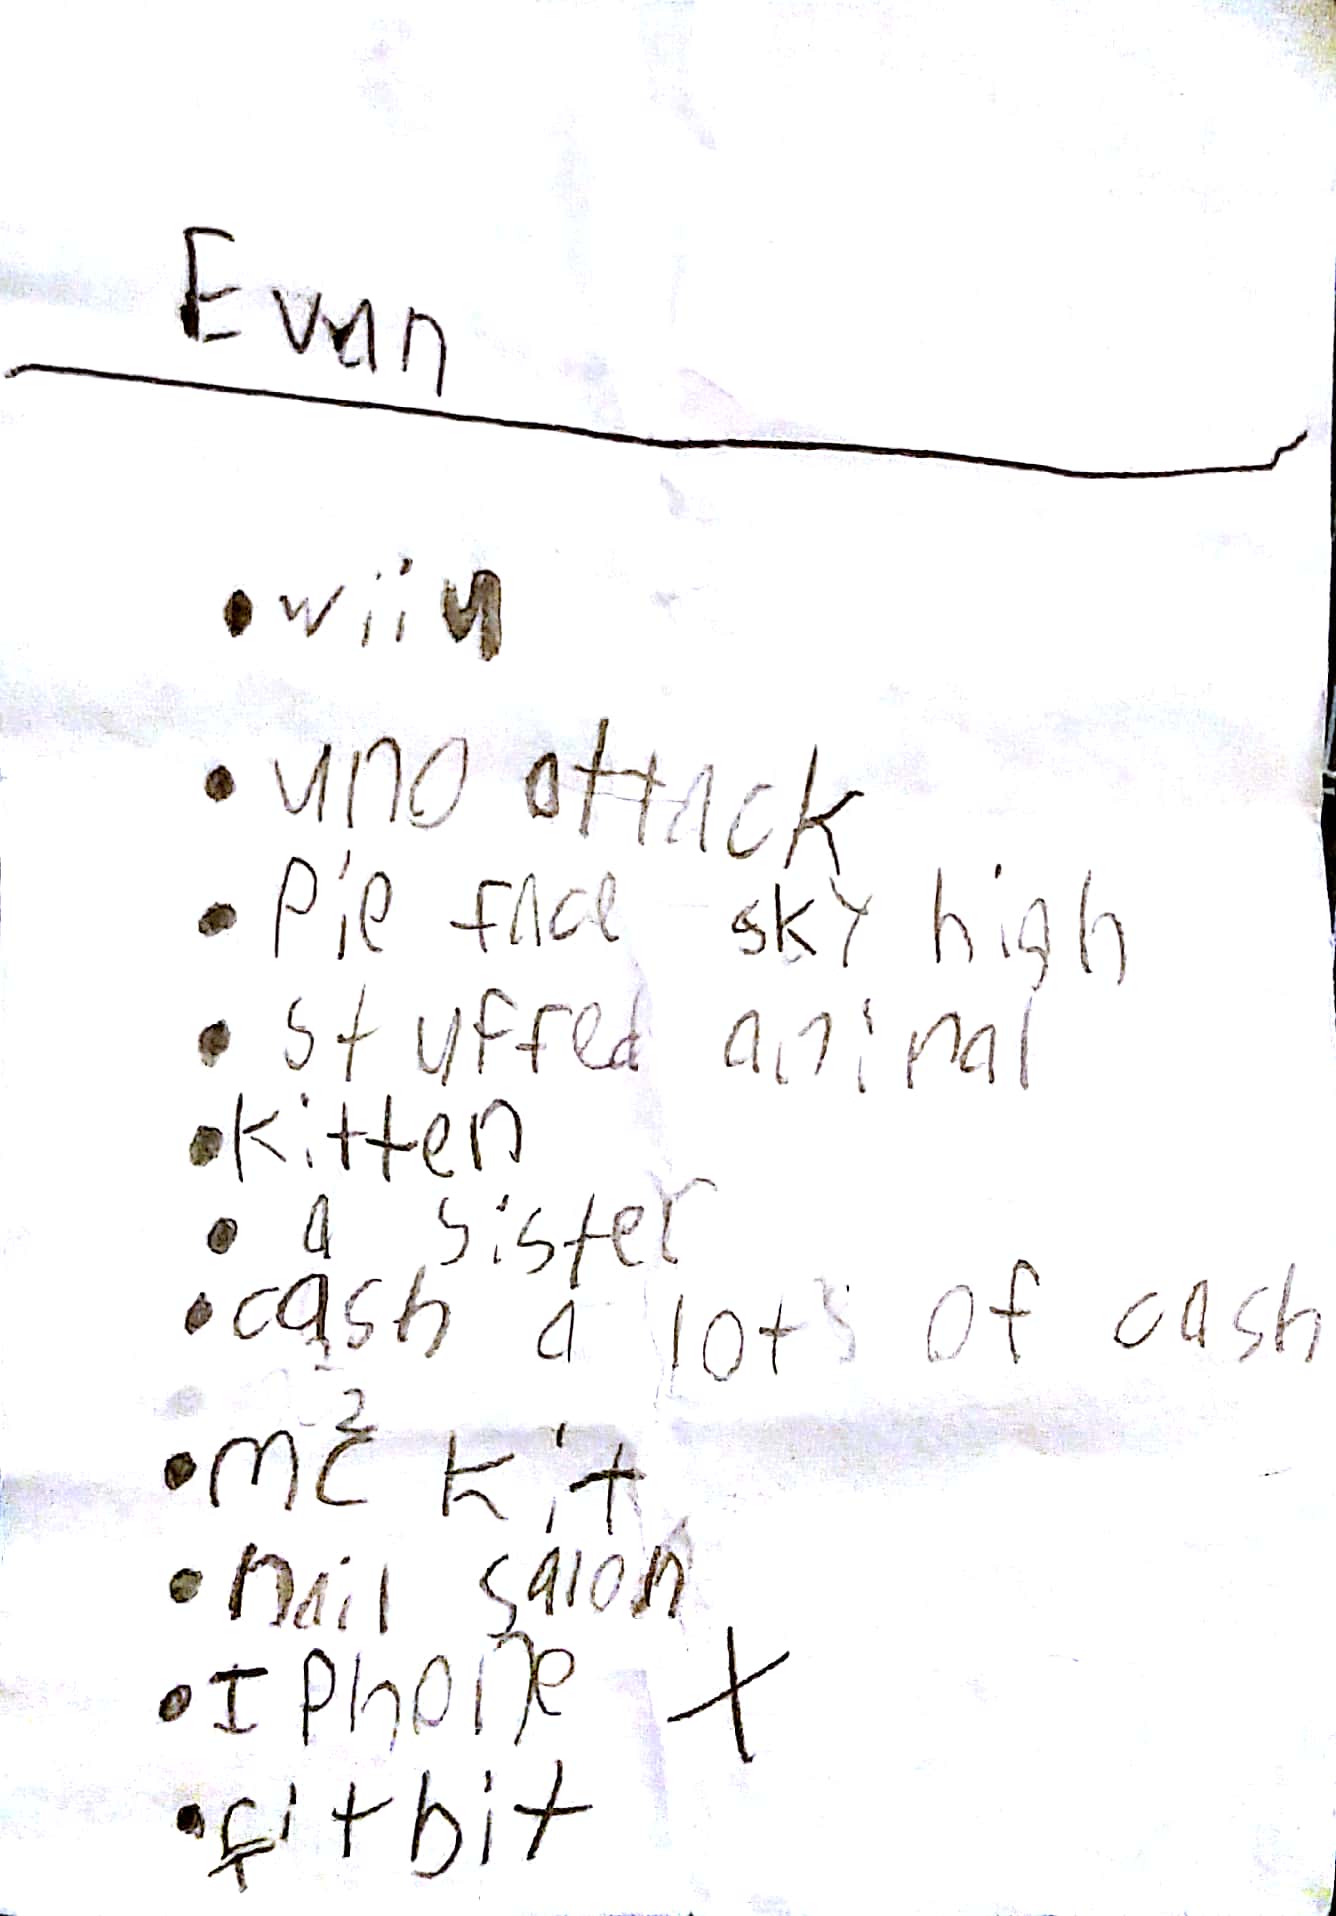 Evan
• wii u
• uno attack
• Pie face sky high
• stuffed animal
• kitten
• a sister
• cash a lots of cash
• mc² kit
• nail salon
• I Phone X
• fitbit